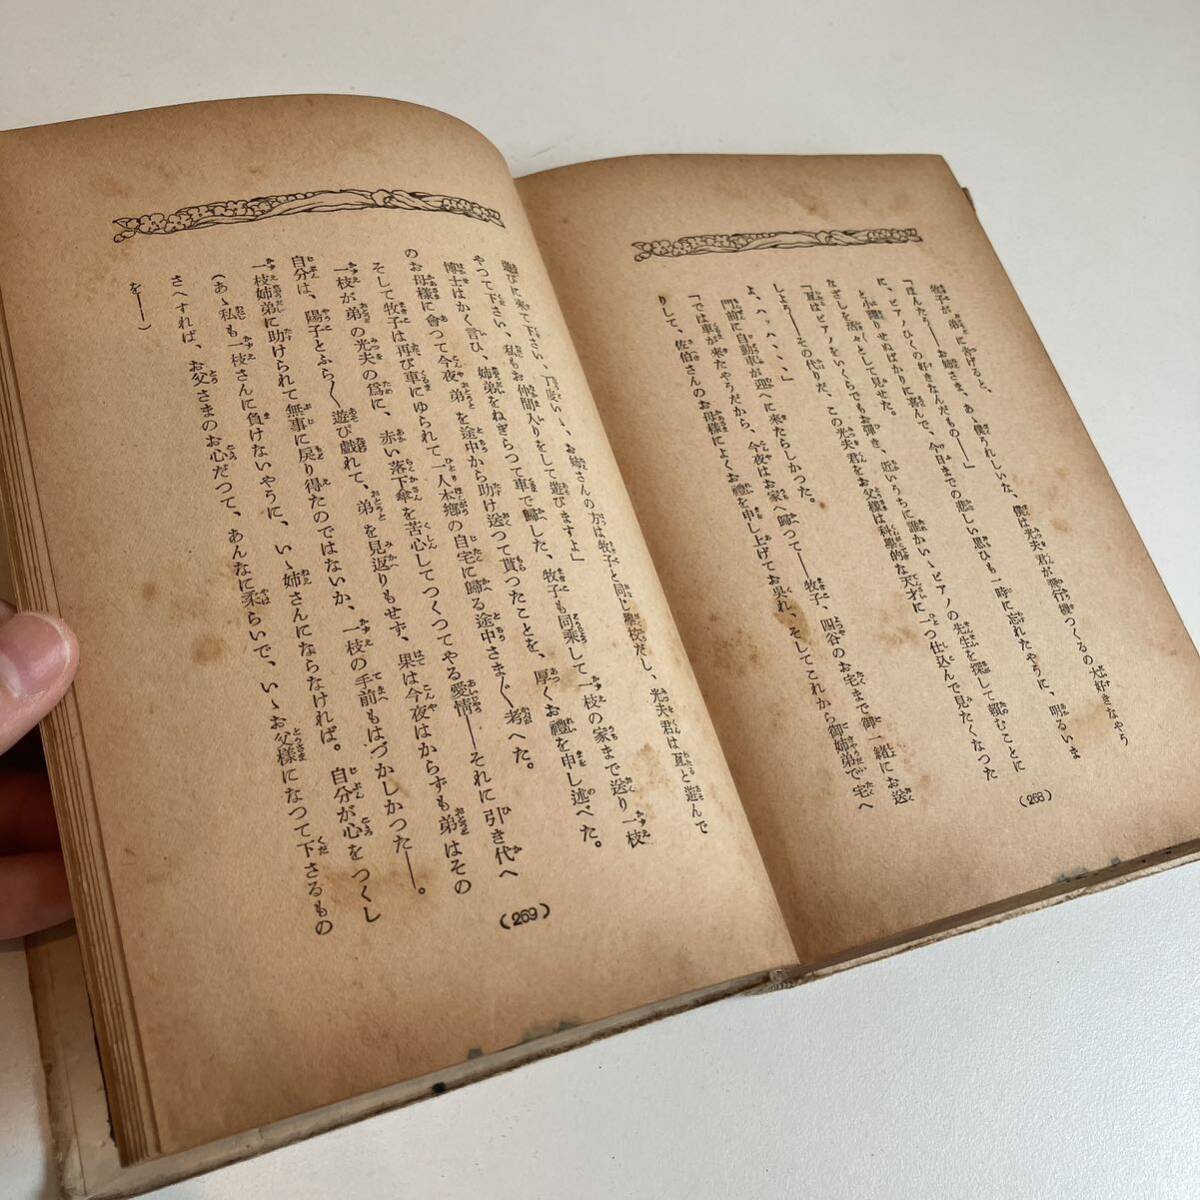 牧子が、弟に告げると、
「ほんたう――お姉さま、あゝ僕うれしいな、僕は光夫君が飛行機つくるの大好きなやう
に、ピアノひくの好きなんだもの――」
と小躍りせぬばかりに喜んで、今日までの悲しい思ひも一時に忘れたやうに、明るいま
なざしを活々として見せた。
「亙はピアノをいくらでもお彈き、近いうちに誰かいゝピアノの先生を探して頼むことに
しよう――その代りだ、この光夫君をお父樣は科學的な天才に一つ仕込んで見たくなった
よ、ハッハヽヽヽ」
門前に自動車が迎へに來たらしかつた。
「では車が來たやうだから、今夜はお家へ歸つて――牧子、四谷のお宅まで御一緒にお送
りして、佐伯さんのお母樣によくお禮を申し上げてお呉れ、そしてこれから御姉弟で宅へ
(268)
遊びに來て下さい、お嬢さんの方は牧子と同じ學校だし、光夫君は亙と遊んで
やつて下さい、私もお仲間入りをして遊びますよ」
博士はかく言ひ、姉弟をねぎらつて車で歸した、牧子も同乘して一枝の家まで送り一枝
のお母樣に會つて今夜弟を途中から助け送つて貰つたことを、厚くお禮を申し述べた。
そして牧子は再び車にゆられて一人本鄕の自宅に歸る途中さま〴〵考へた。
一枝が弟の光夫の爲に、赤い落下傘を苦心してつくつてやる愛情――それに引き代へ
自分は、陽子とふら〳〵遊び戯れて、弟を見返りもせず、果は今夜はからずも弟はその
一枝姉弟に助けられて無事に戻り得たのではないか、一枝の手前もはづかしかつた――。
(あゝ私も一枝さんに負けないやうに、いゝ姉さんにならなければ。自分が心をつくし
さへすれば、お父さまのお心だつて、あんなに柔らいで、いゝお父樣になつて下さるもの
を――)
(269)